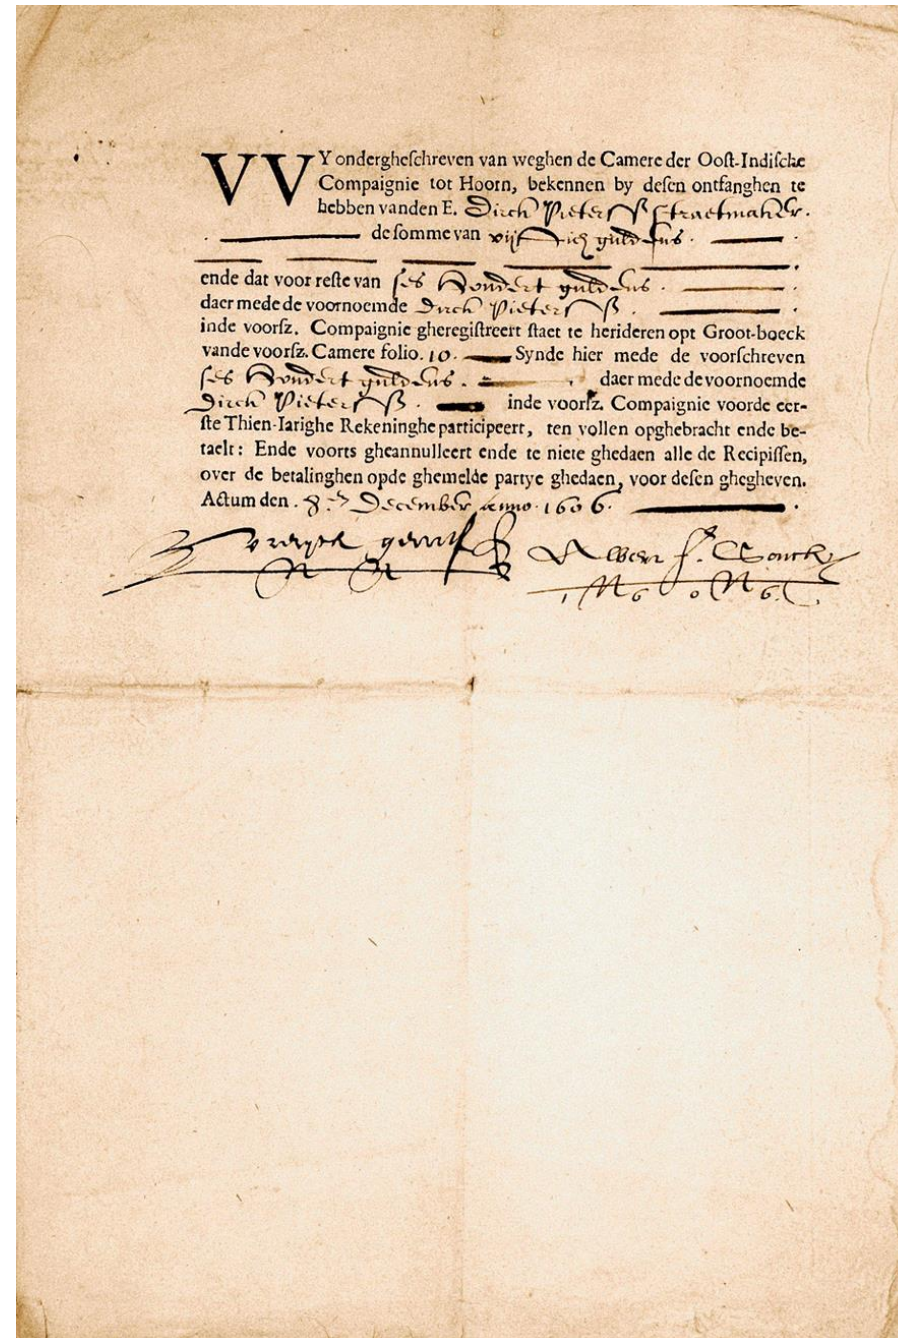 VVY ondergheſchreven van weghen de Camere der Ooſt-Indiſche
Compaignie tot Hoorn, bekennen by deſen ontfanghen te
hebben vanden E. Dirck Pietersſ Straetmaker.
de ſomme van vijftich guldens.
ende dat voor reſte van ſes hondert guldens.
daer mede de voornoemde Dirck Pietersſ.
inde voorſz. Compaignie gheregiſtreert ſtaet te herideren opt Groot-boeck
vande voorſz. Camere folio. 10. Synde hier mede de voorſchreven
ſes hondert guldens. daer mede de voornoemde
Dirck Pietersſ. inde voorſz. Compaignie voorde eer-
ſte Thien-Iarighe Rekeninghe participeert, ten vollen opghebracht ende be-
taelt: Ende voorts gheannulleert ende te niete ghedaen alle de Recipiſſen,
over de betalinghen opde ghemelde partye ghedaen, voor deſen ghegheven.
Actum den. 8. December anno. 1606.
1606